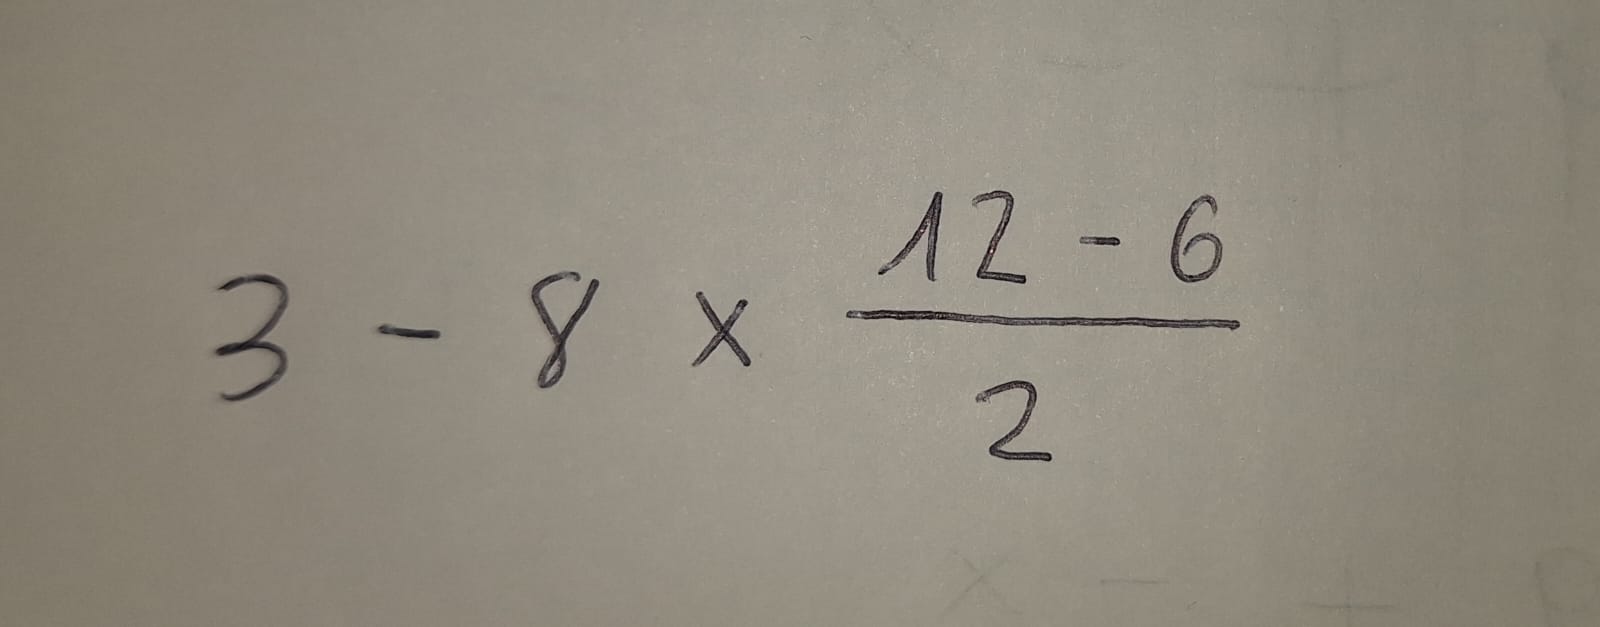 3 - 8 × \frac{12 - 6}{2}